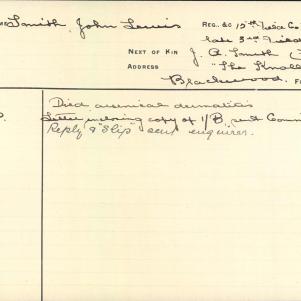 Smith, John Lewis REG. &C 15th Field Co
late 3rd Field
NEXT OF KIN J. R. Smith
ADDRESS "The Knoll
Blackwood.
Died arsenical dermatitis
Letter enclosing copy of 1/B, sent Comm
Reply & "Slip" sent enquirer.